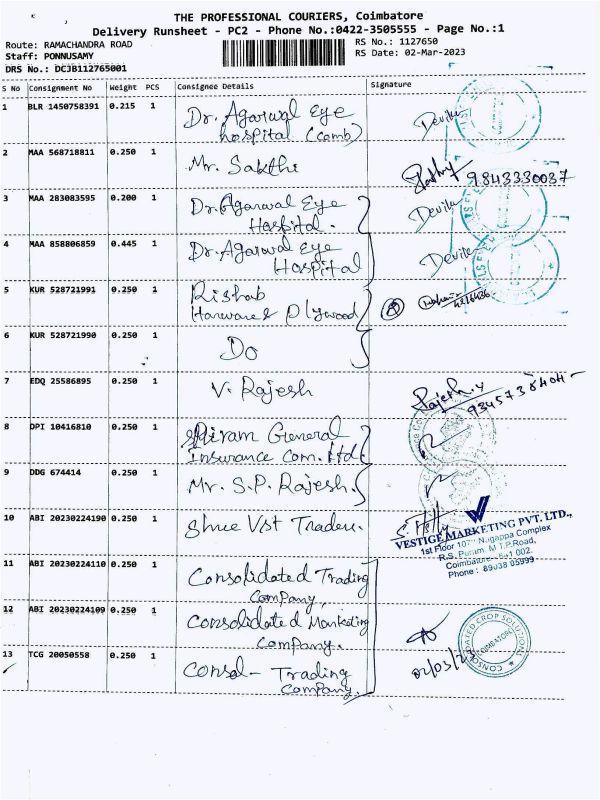 THE PROFESSIONAL COURIERS, Coimbatore
Delivery Runsheet - PC2 - Phone No.:0422-3505555 - Page No.:1
Route: RAMACHANDRA ROAD
RS No.: 1127650
Staff: PONNUSAMY
RS Date: 02-Mar-2023
DRS No.: DCJB112765001
S No Consignment No Weight PCS Consignee Details Signature
1 BLR 1450758391 0.215 1 Dr. Agarwal Eye
hospital (comb)
2 MAA 568718811 0.250 1 Mr. Sakthi
9843330037
3 MAA 283083595 0.200 1 Dr. Agarwal Eye
Hospital.
4 MAA 858806859 0.445 1 Dr. Agarwal Eye
Hospital
5 KUR 528721991 0.250 1 Rishab
Harware & Plywood
6 KUR 528721990 0.250 1 Do
7 EDQ 25586895 0.250 1 V. Rajesh
Rajesh.v
8 DPI 10416810 0.250 1 Shriram General
Insurance Com. Ltd
9 DDG 674414 0.250 1 Mr. S.P. Rajesh.
10 ABI 20230224190 0.250 1 Shree Vst Traders.
VESTIGE MARKETING PVT. LTD.,
1st Floor 107 Nagappa Complex
R.S. Puram, M.T.P.Road,
Coimbatore - 641 002.
Phone : 89038 05999
11 ABI 20230224110 0.250 1 Consolidated Trading
Company,
12 ABI 20230224109 0.250 1 Consolidated Marketing
Company.
13 TCG 20050558 0.250 1 Consol- Trading
Company.
CONSOLIDATED CROP SOLUTIONS
COIMBATORE
02/03/23